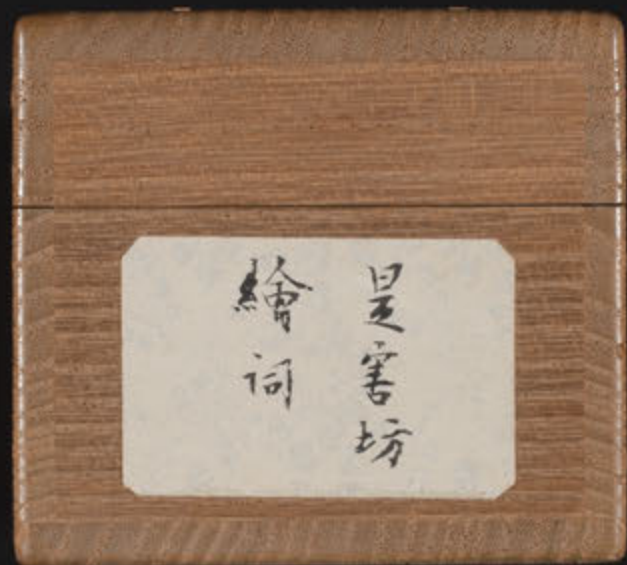 是害坊
繪詞